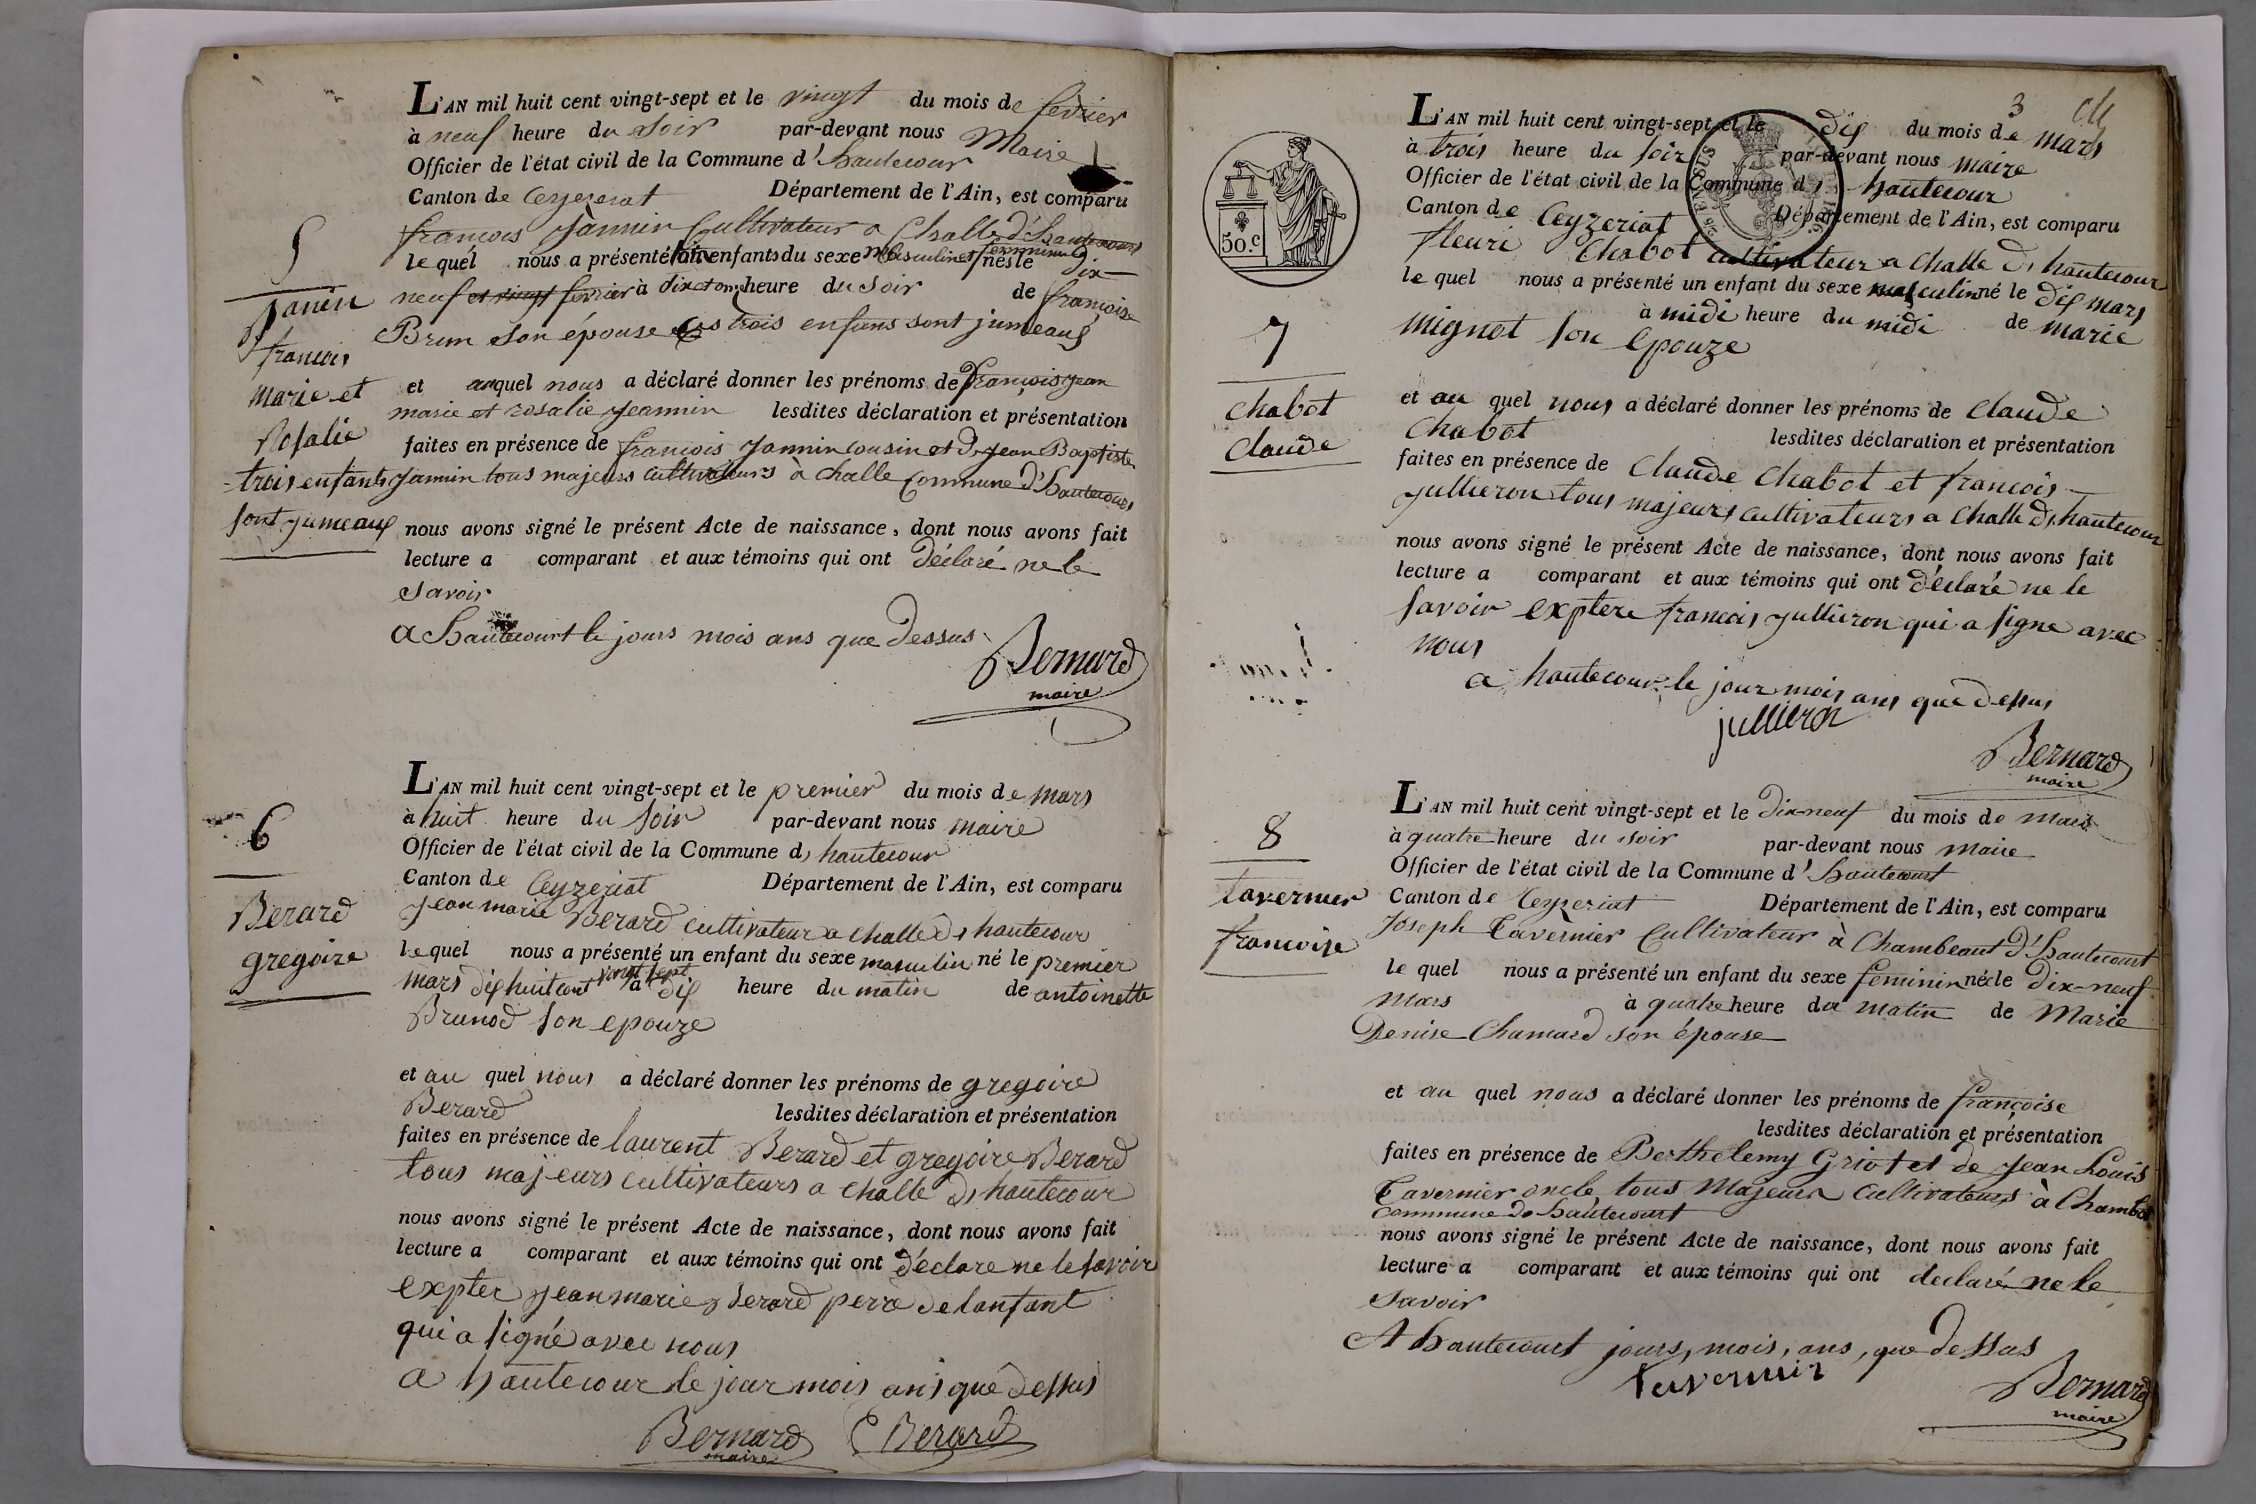 5
Janin
françois
marie et
Rosalie
trois enfants
sont jumeaux
L'AN mil huit cent vingt-sept et le vingt du mois de fevrier
à neuf heure du soir par-devant nous Maire
Officier de l'état civil de la Commune d'hautecour
Canton de Ceyzeriat Département de l'Ain, est comparu
françois Jannin Cultivateur a Challe d'hautecourt
le quel nous a présenté trois enfants du sexe masculin et femminin nés le dix-
neuf et vingt fevrier à dix et onze heure du soir de françoise
Brun son épouse les trois enfans sont jumeaux
et auquel nous a déclaré donner les prénoms de françois jean
marie et rosalie Jeannin lesdites déclaration et présentation
faites en présence de françois Jannin cousin et de Jean Baptiste
Jannin tous majeurs cultivateurs à Challe Commune d'hautecours
nous avons signé le présent Acte de naissance, dont nous avons fait
lecture a comparant et aux témoins qui ont déclaré ne le
savoir
a hautecourt le jours mois ans que dessus
Bernard
maire
6
Berard
gregoire
L'AN mil huit cent vingt-sept et le premier du mois de mars
à huit heure du soir par-devant nous maire
Officier de l'état civil de la Commune d, hautecour
Canton de Ceyzeriat Département de l'Ain, est comparu
jean marie Berard cultivateur a challe d, hautecour
le quel nous a présenté un enfant du sexe masculin né le premier
mars dix huit cent vingt sept à dix heure du matin de antoinette
Brunod son epouze
et au quel nous a déclaré donner les prénoms de gregoire
Berard lesdites déclaration et présentation
faites en présence de laurent Berard et gregoire Berard
tous majeurs cultivateurs a challe d, hautecour
nous avons signé le présent Acte de naissance, dont nous avons fait
lecture a comparant et aux témoins qui ont déclare ne le savoir
expter jean marie Berard perre de lanfant
qui a signé avec nous
a hautecour le jour mois ans que dessus
Bernard Berard
maire
3
50.c
7
chabot
claude
L'AN mil huit cent vingt-sept et le dix du mois de mars
à trois heure du soir par-devant nous maire
Officier de l'état civil de la Commune d, hautecour
Canton de Ceyzeriat Département de l'Ain, est comparu
fleuri Chabot cultivateur a challe d, hautecour
le quel nous a présenté un enfant du sexe masculin né le dix mars
à midi heure du midi de marie
mignot son epouze
et au quel nous a déclaré donner les prénoms de claude
chabot lesdites déclaration et présentation
faites en présence de claude chabot et françois
jullieron tous majeurs cultivateurs a challe d, hautecour
nous avons signé le présent Acte de naissance, dont nous avons fait
lecture a comparant et aux témoins qui ont déclaré ne le
savoir exptere françois jullieron qui a signe avec
nous
a hautecour le jour mois ans que dessus
jullieron
Bernard
maire
8
tavernier
francoise
L'AN mil huit cent vingt-sept et le dix-neuf du mois de mars
à quatre heure du soir par-devant nous maire
Officier de l'état civil de la Commune d'hautecourt
Canton de Ceyzeriat Département de l'Ain, est comparu
Joseph Tavernier Cultivateur à Chambeaut d'hautecourt
le quel nous a présenté un enfant du sexe feminin née le dix-neuf
mars à quatre heure du matin de Marie
Denise Chamard son épouse
et au quel nous a déclaré donner les prénoms de françoise
lesdites déclaration et présentation
faites en présence de Berthelemy Griot et de Jean Louis
Tavernier oncle tous Majeurs Cultivateurs à Chambot
Commune de hautecourt
nous avons signé le présent Acte de naissance, dont nous avons fait
lecture a comparant et aux témoins qui ont declaré ne le
savoir
A hautecourt jours, mois, ans, que dessus
tavernier
Bernard
maire